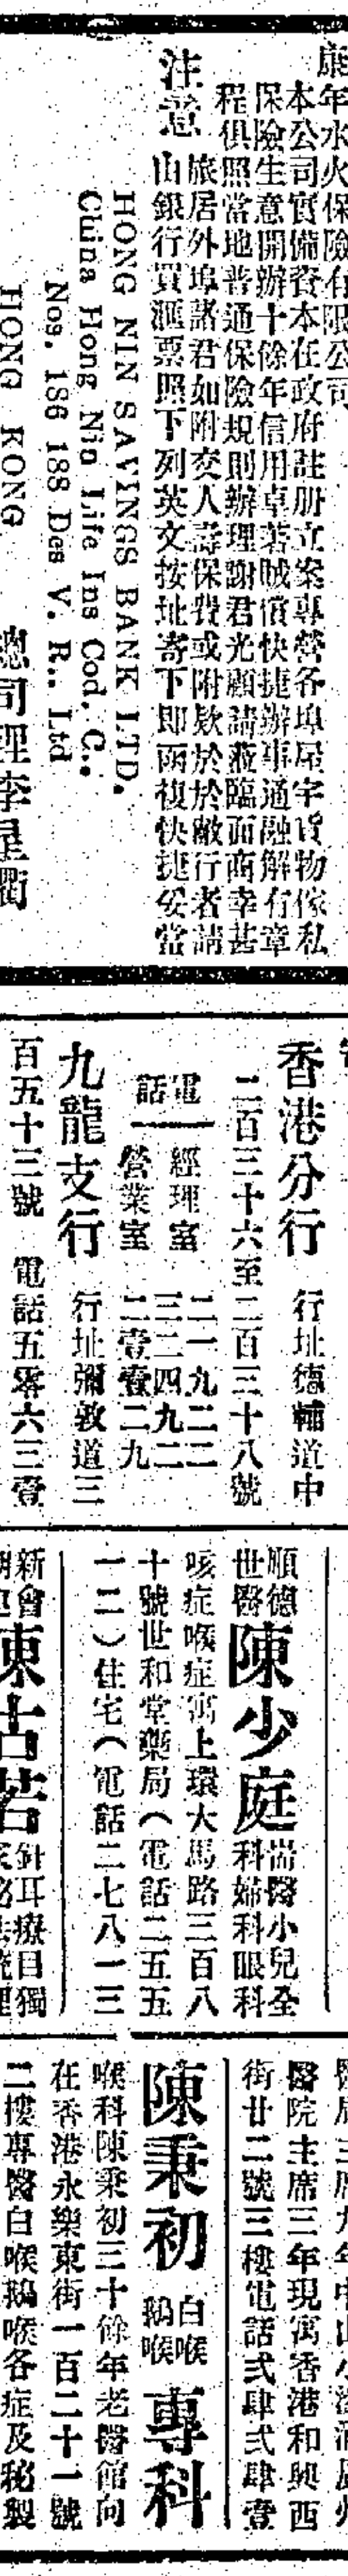 康年水火保險有限公司
本公司實備資本在政府註册立案專營各埠屋宇貨物傢私
保險生意開辦十餘年信用卓著賊償快捷辦事通融解有章
程俱照當地普通保險規則辦理謝君光顧請蒞臨面商幸甚
注意
旅居外埠諸君如附交人壽保費或附欵於於敝行者請
山銀行買滙票照下列英文按址寄下即函複快捷妥當
HONG NIN SAVINGS BANK LTD.
China Hong Nin Life Ins Cod. C.,
Nos. 186 188 Des V. R., Ltd
HONG KONG
總司理李星衢
香港分行 行址德輔道中
二百三十六至二百三十八號
電話
經理室 二一九二二
三二四九二
營業室 二壹壹二九
九龍支行 行址彌敦道三
百五十三號 電話五零六三壹
順德
世醫
陳少庭
耑醫小兒全
科婦科眼科
咳症喉症寓上環大馬路三百八
十號世和堂藥局(電話二五五
一二)住宅(電話二七八一三
新會
陳古若
針耳療目獨
醫院主席三年現寓香港和興西
街廿二號三樓電話弍肆弍肆壹
陳秉初
白喉
鵝喉
專科
喉科陳秉初三十餘年老醫館向
在香港永樂東街一百二十一號
二樓專醫白喉鵝喉各症及秘製